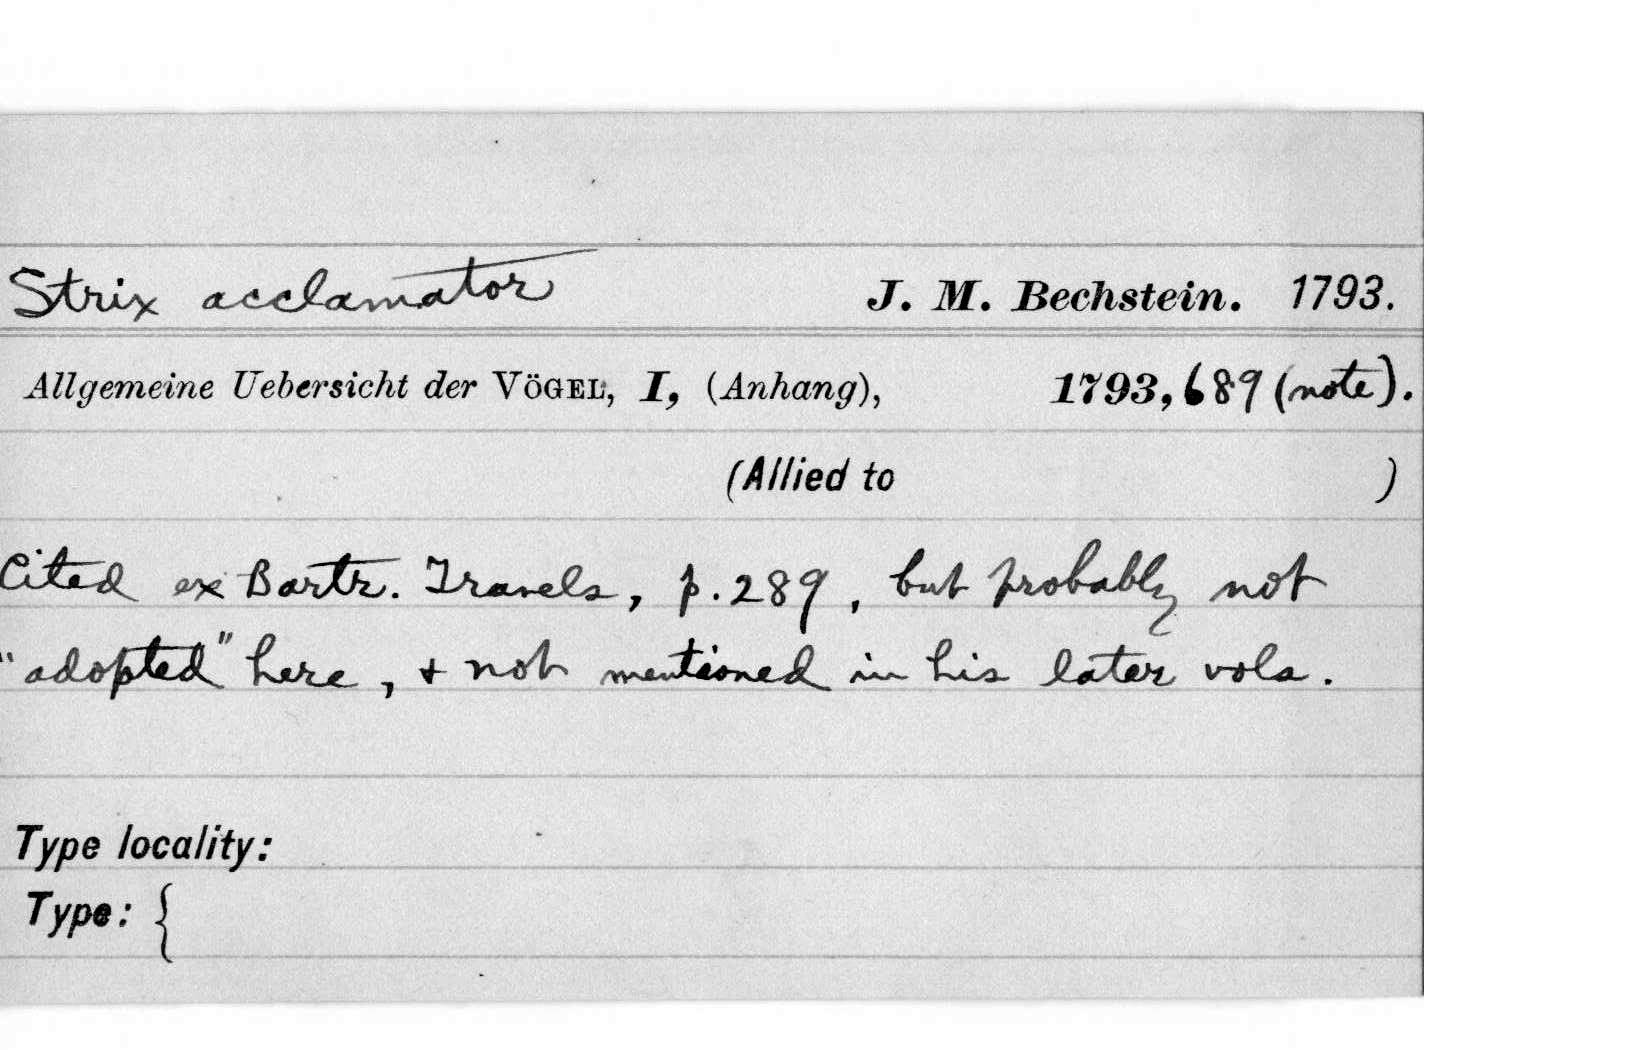 Strix acclamator J. M. Bechstein. 1793.
Allgemeine Uebersicht der VÖGEL, I, (Anhang), 1793, 689 (note).
(Allied to )
Cited ex Bartr. Travels, p. 289, but probably not
"adopted" here, & not mentioned in his later vols.
Type locality:
Type: {